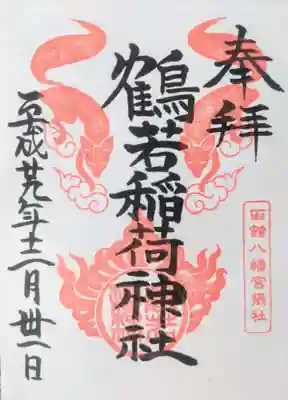 奉拝
鶴若稲荷神社
平成廿九年十二月卅一日
函館八幡宮